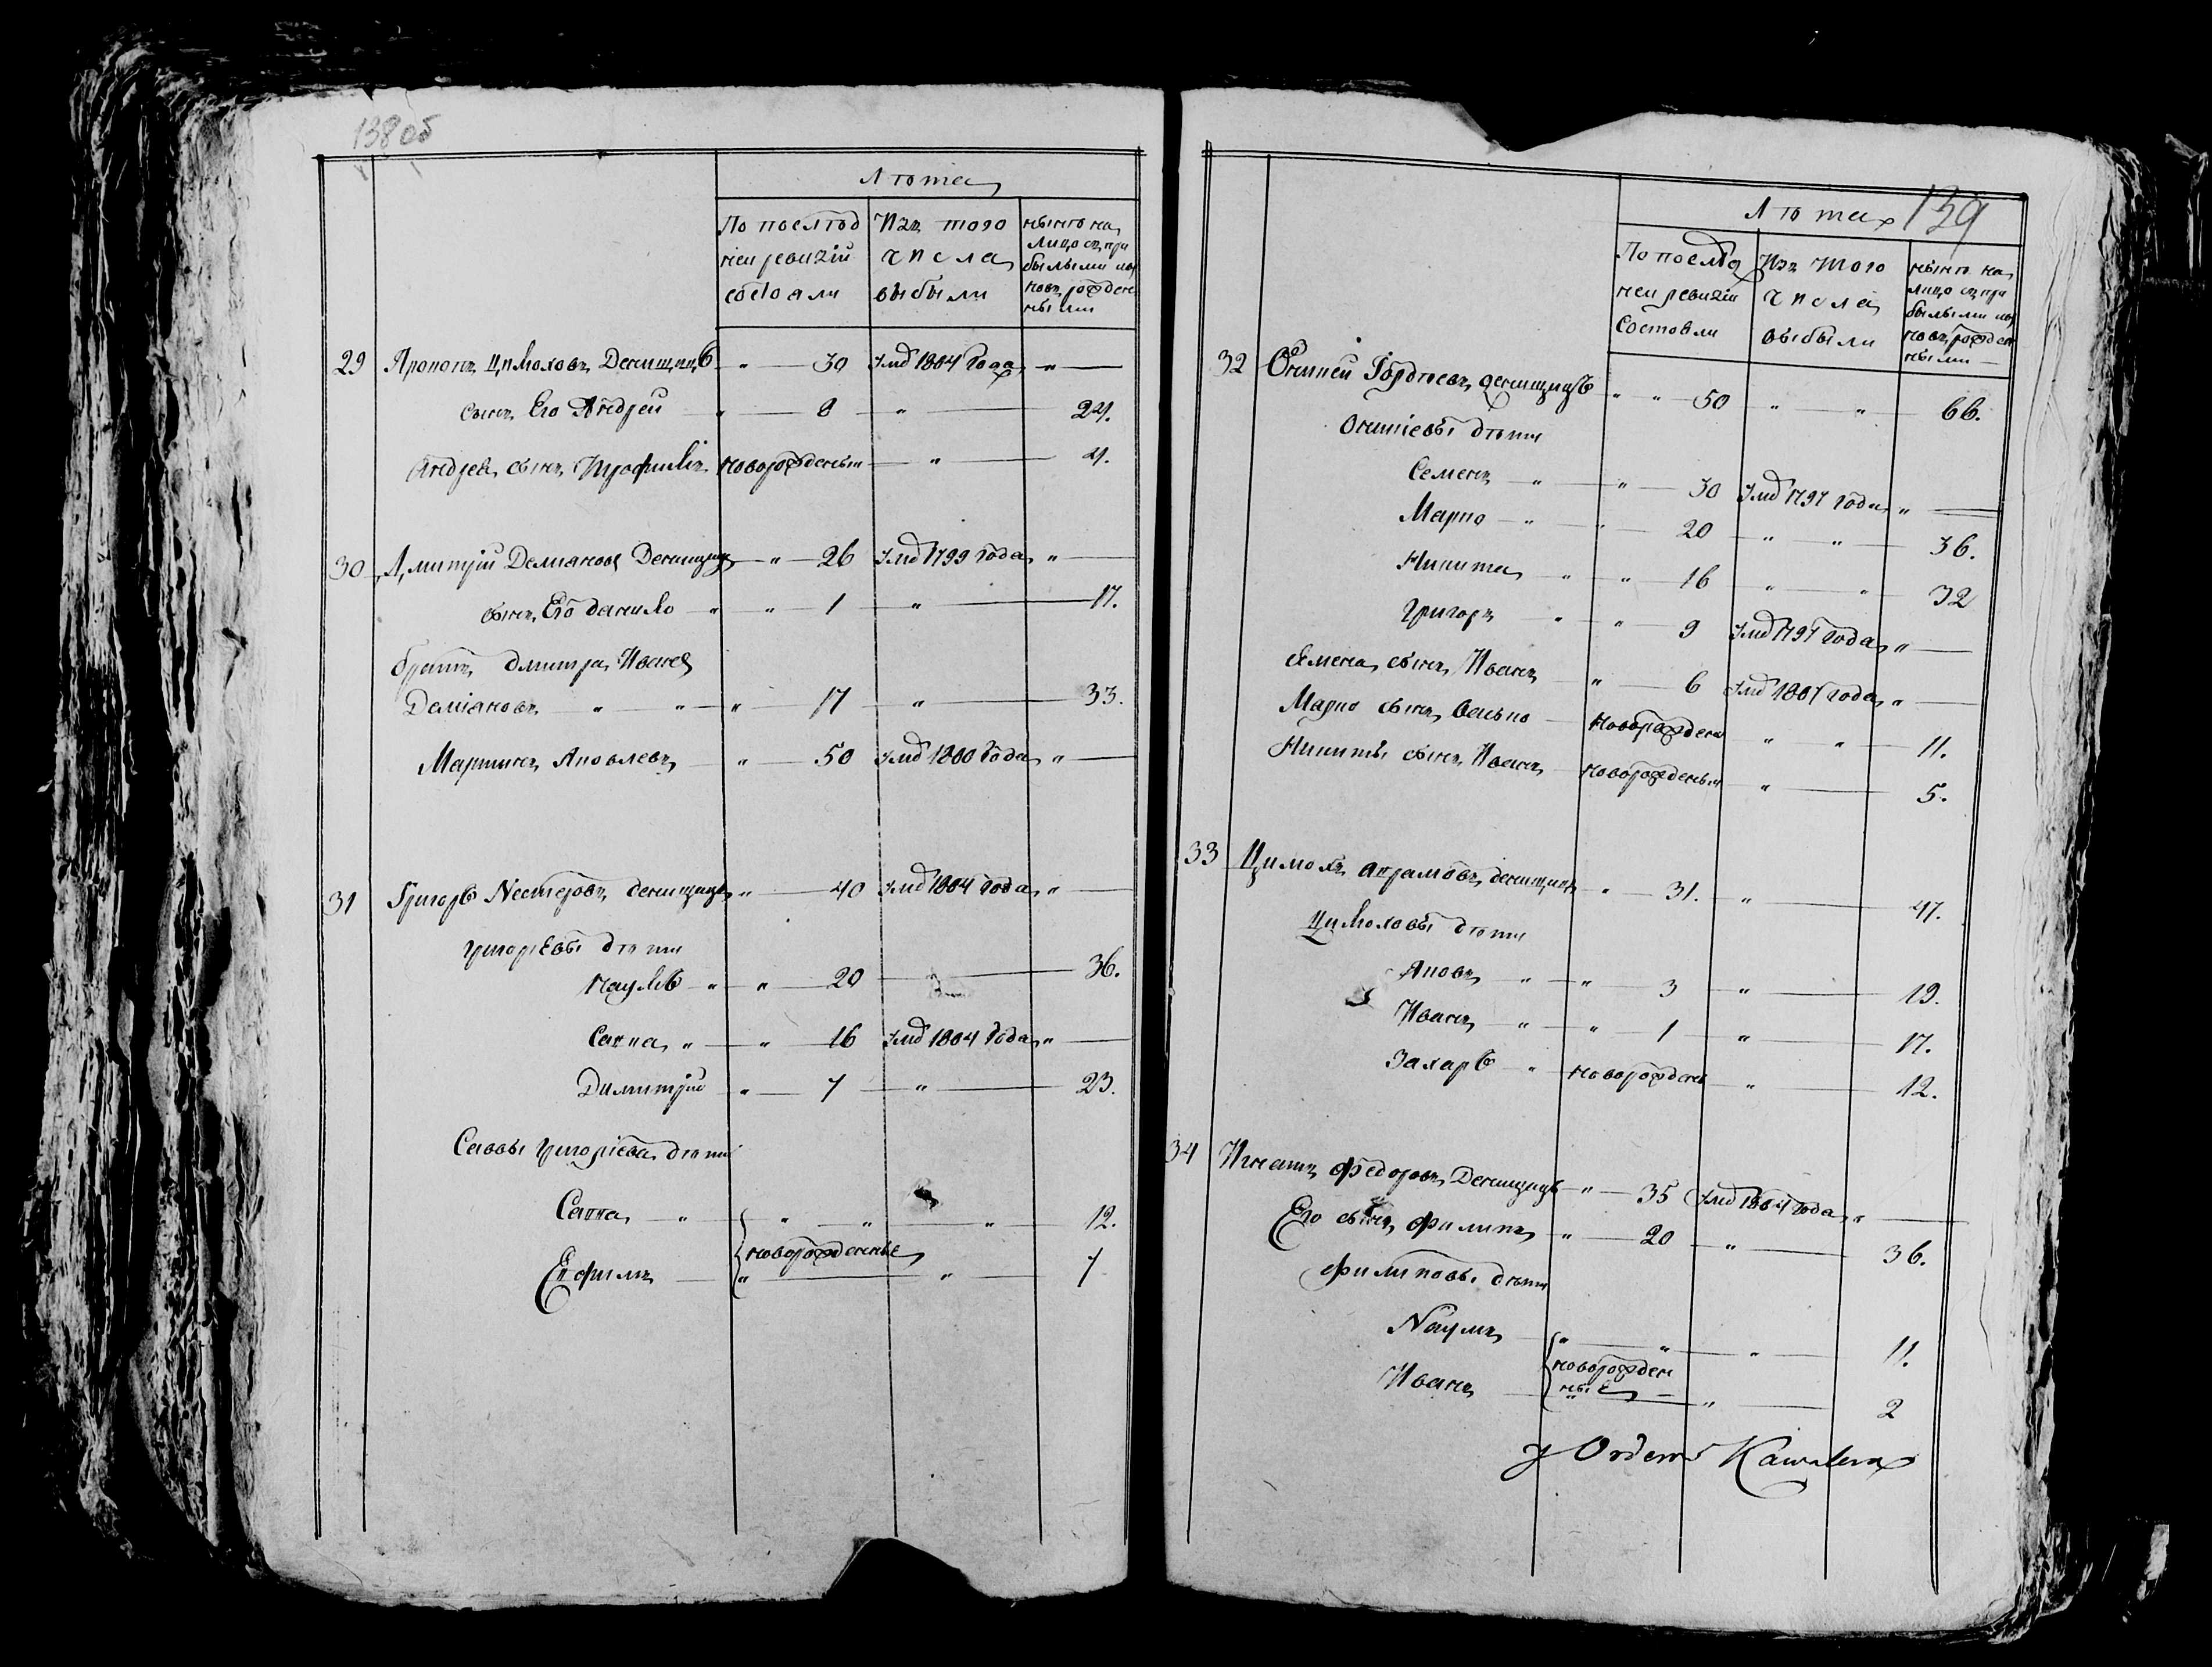 138 об
Лѣта
По послѣд
ней ревизіи
состояли
Изъ того
числа
выбыли
нынѣ на
лицо съ при
былыми и
новъ рожден
ными
29 Яронъ Цимоховъ Денищицъ " 30 умѣ 1804 года "
сынъ Его Андрей " 8 " 24.
Андрея сынъ Трофимъ новорожденъ " 4.
30 Дмитрій Деміяновъ Денищицъ " 26 умѣ 1799 года "
сынъ Его данило " " 1 " 17.
братъ дмитра Иванъ
Деміяновъ " " " 17 " 33.
Мартинъ Яковлевъ " 50 умѣ 1800 года "
31 Григоръ Нестеровъ денищицъ " 40 умѣ 1804 года "
григоріевы дѣти
Наумъ " " 20 36.
Савка " " 16 умѣ 1804 года "
Димитрій " 7 " 23.
Саввы григоріева дѣти
Савка " " " " 12.
новорожденные
Евфимъ " " 7
139
Лѣта
По послѣд
ней ревизіи
состояли
Изъ того
числа
выбыли
нынѣ на
лицо съ при
былыми и
новъ рожден
ными
32 Оникей Гордѣевъ денищицъ " " 50 " " 66.
Оникіевы дѣти
Семенъ " " 30 умѣ 1797 года "
Марко " " 20 " " 36.
Никита " " 16 " " 32
григоръ " " 9 умѣ 1797 года "
Семена сынъ Иванъ " 6 умѣ 1807 года "
Марка сынъ Васько новорожденъ " " 11.
Никиты сынъ Иванъ новорожденъ " 5.
33 Цимохъ апрамовъ денищицъ " 31. " 47.
Цимоховы дѣти
Яковъ " " 3 " 19.
Иванъ " " 1 " 17.
Захаръ " новорожденъ " 12.
34 Игнатъ Федоровъ Денищицъ " 35 умѣ 1804 года "
Его сынъ филипъ " 20 " 36.
филиповы дѣти
Наумъ " " " 11.
новорожден
ные
Иванъ " " 2
y Orderu Kawalera